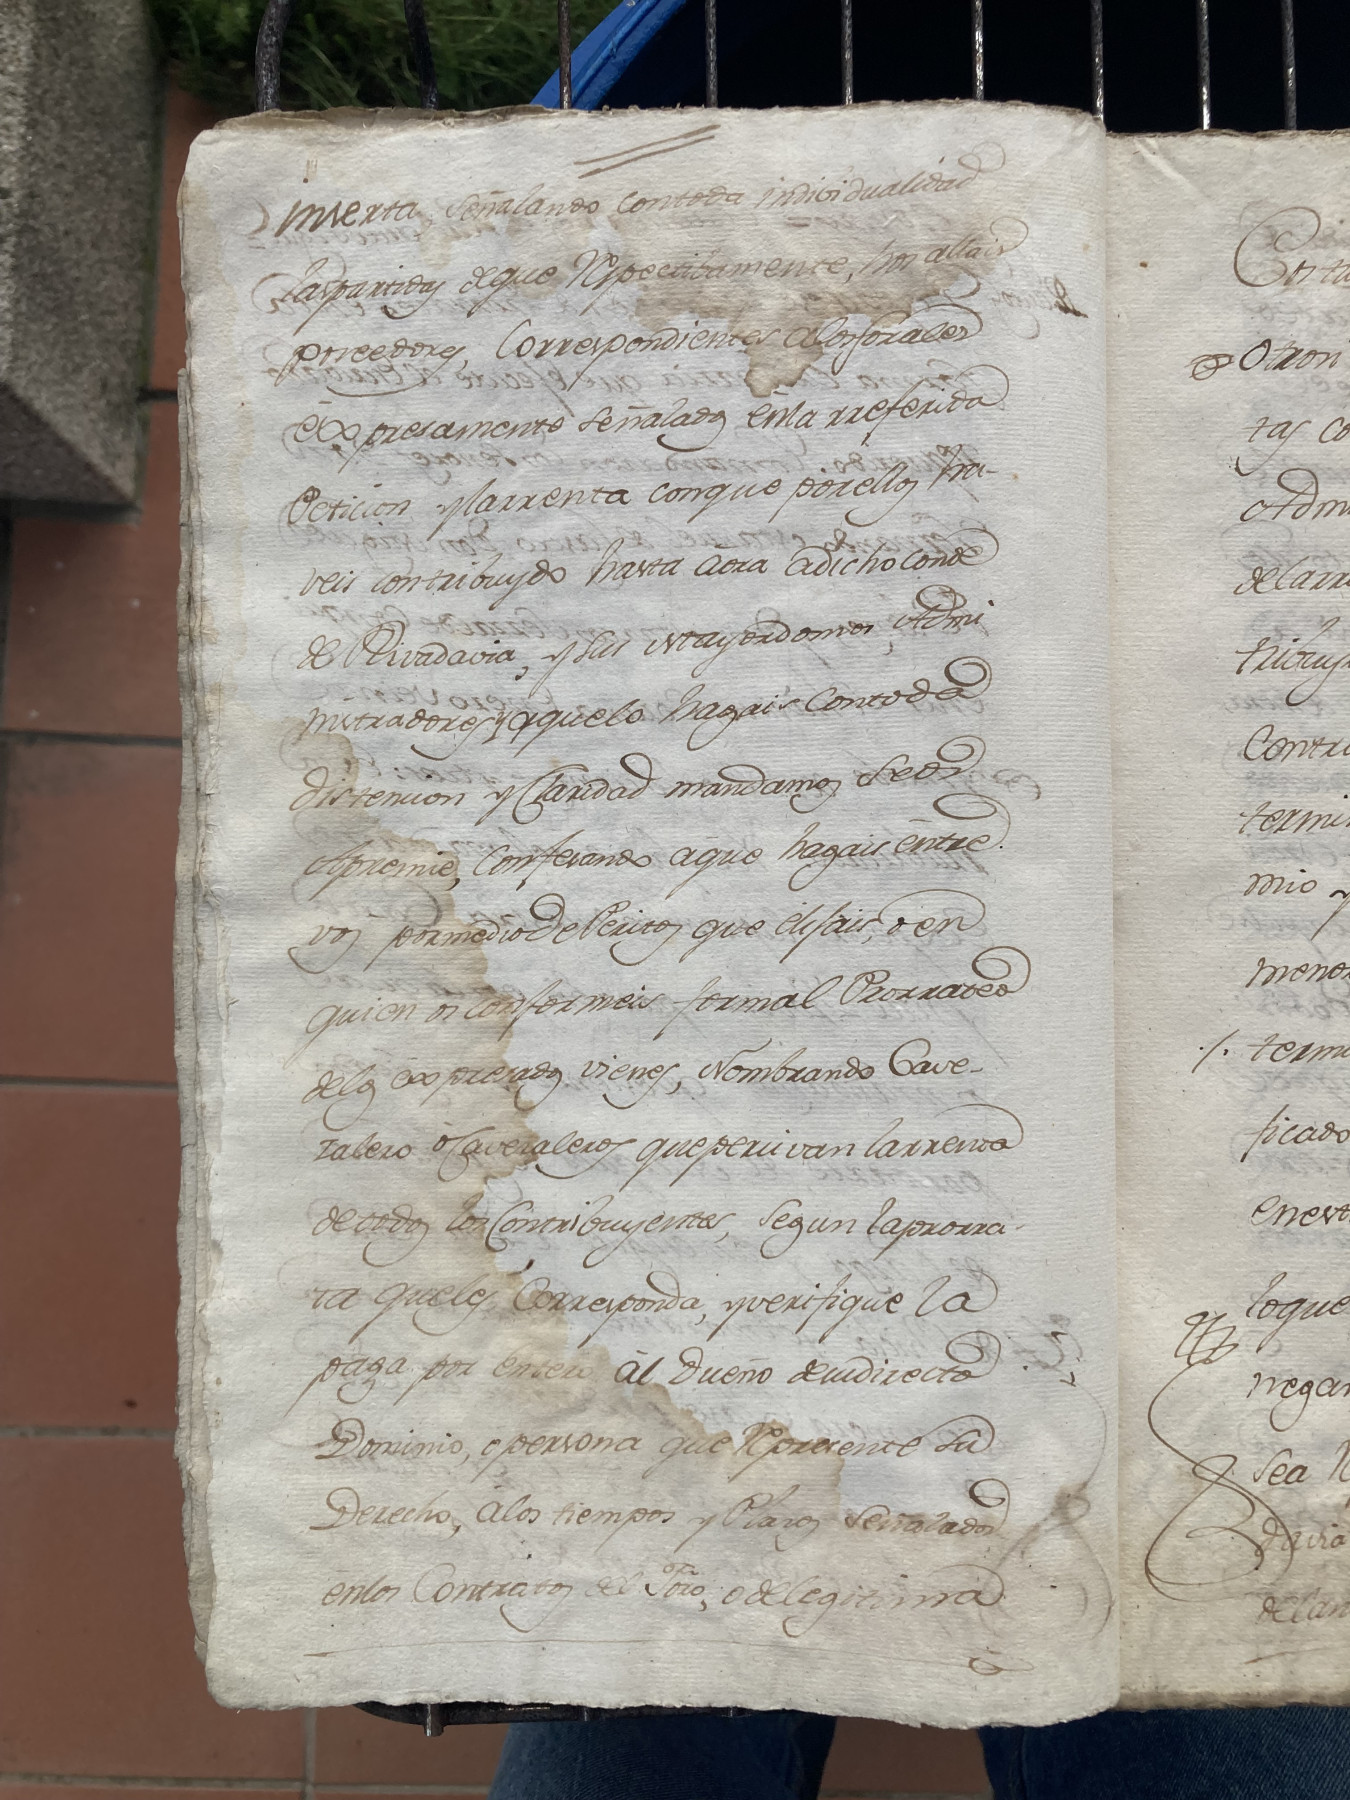 inserta, señalando contoda individualidad
laspartidas deque Rspectibamente, hos allais
poseedores, Correspondientes alosforales
exxpresamente señalados énla rreferida
Peticion ylarrenta conque porellos ha-
veis contribuydo hasta aora adicho conde
de Rivadavia, y sus Mayordomos, Admi
nistradores, y aquelo hagais Contoda
distencion y Claridad mandamos seos
Apremie, Confesando aque hagais éntre
vos pormedio de Peritos que elijais, o en
quien os conformeis formal Prorrateo
delos exxpresados vienes, Nombrando Cave-
zalero ó Cavezaleros quepercivan larrenta
detodos los Contribuyentes, segun laprorra-
ta queles Corresponda, yverifique la
paga por entero ál Dueño desudirecto
Dominio, opersona que Rpresente su
Derecho, álos tiempos y Plazos señalados
énlos Contratos del Foro, o delegitima
Otros
tas co
Adm
delarr
tribuy
Contr
termi
mio y
menos
./. termi
ficado
enest
loque
negar
sea R
davia
delan